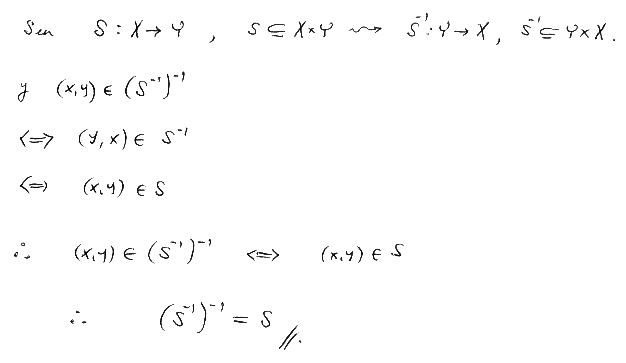 Sea S : X → Y , S ⊆ X×Y ⇝ S⁻¹: Y → X, S⁻¹ ⊆ Y×X.
y (x,y) ∈ (S⁻¹)⁻¹
⟺ (y,x) ∈ S⁻¹
⟺ (x,y) ∈ S
∴ (x,y) ∈ (S⁻¹)⁻¹ ⟺ (x,y) ∈ S
∴ (S⁻¹)⁻¹ = S //.